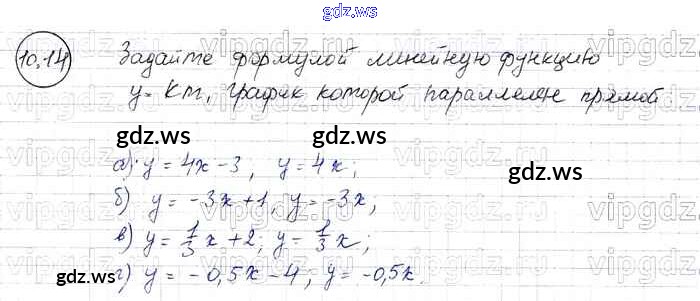 gdz.ws
10.14 Задайте формулой линейную функцию
y = Km, график которой параллелен прямой
gdz.ws gdz.ws
а) y = 4x - 3, y = 4x;
б) y = -3x + 1, y = -3x;
в) y = 1/3 x + 2; y = 1/3 x;
г) y = -0,5x - 4; y = -0,5x.
gdz.ws gdz.ws